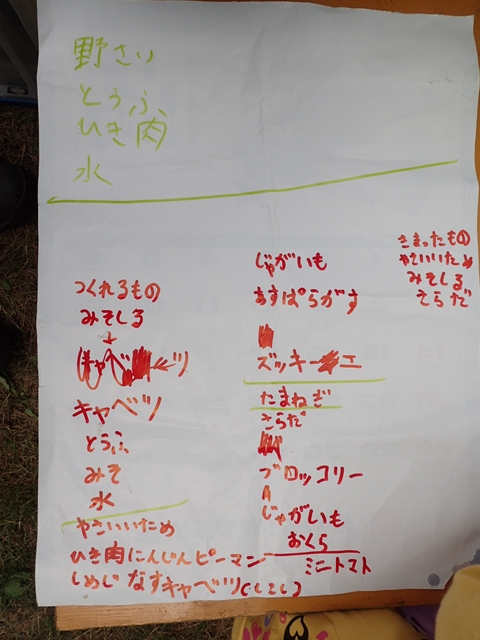 野さい
とうふ
ひき肉
水
つくれるもの
みそしる
キャベツ
とうふ
みそ
水
やさいいため
ひき肉にんじんピーマン
しめじ なすキャベツ
じゃがいも
あすぱらがす
ズッキーエ
たまねぎ
さらだ
ブロッコリー
じゃがいも
おくら
ミニトマト
きまったもの
やさいいため
みそしる
さらだ